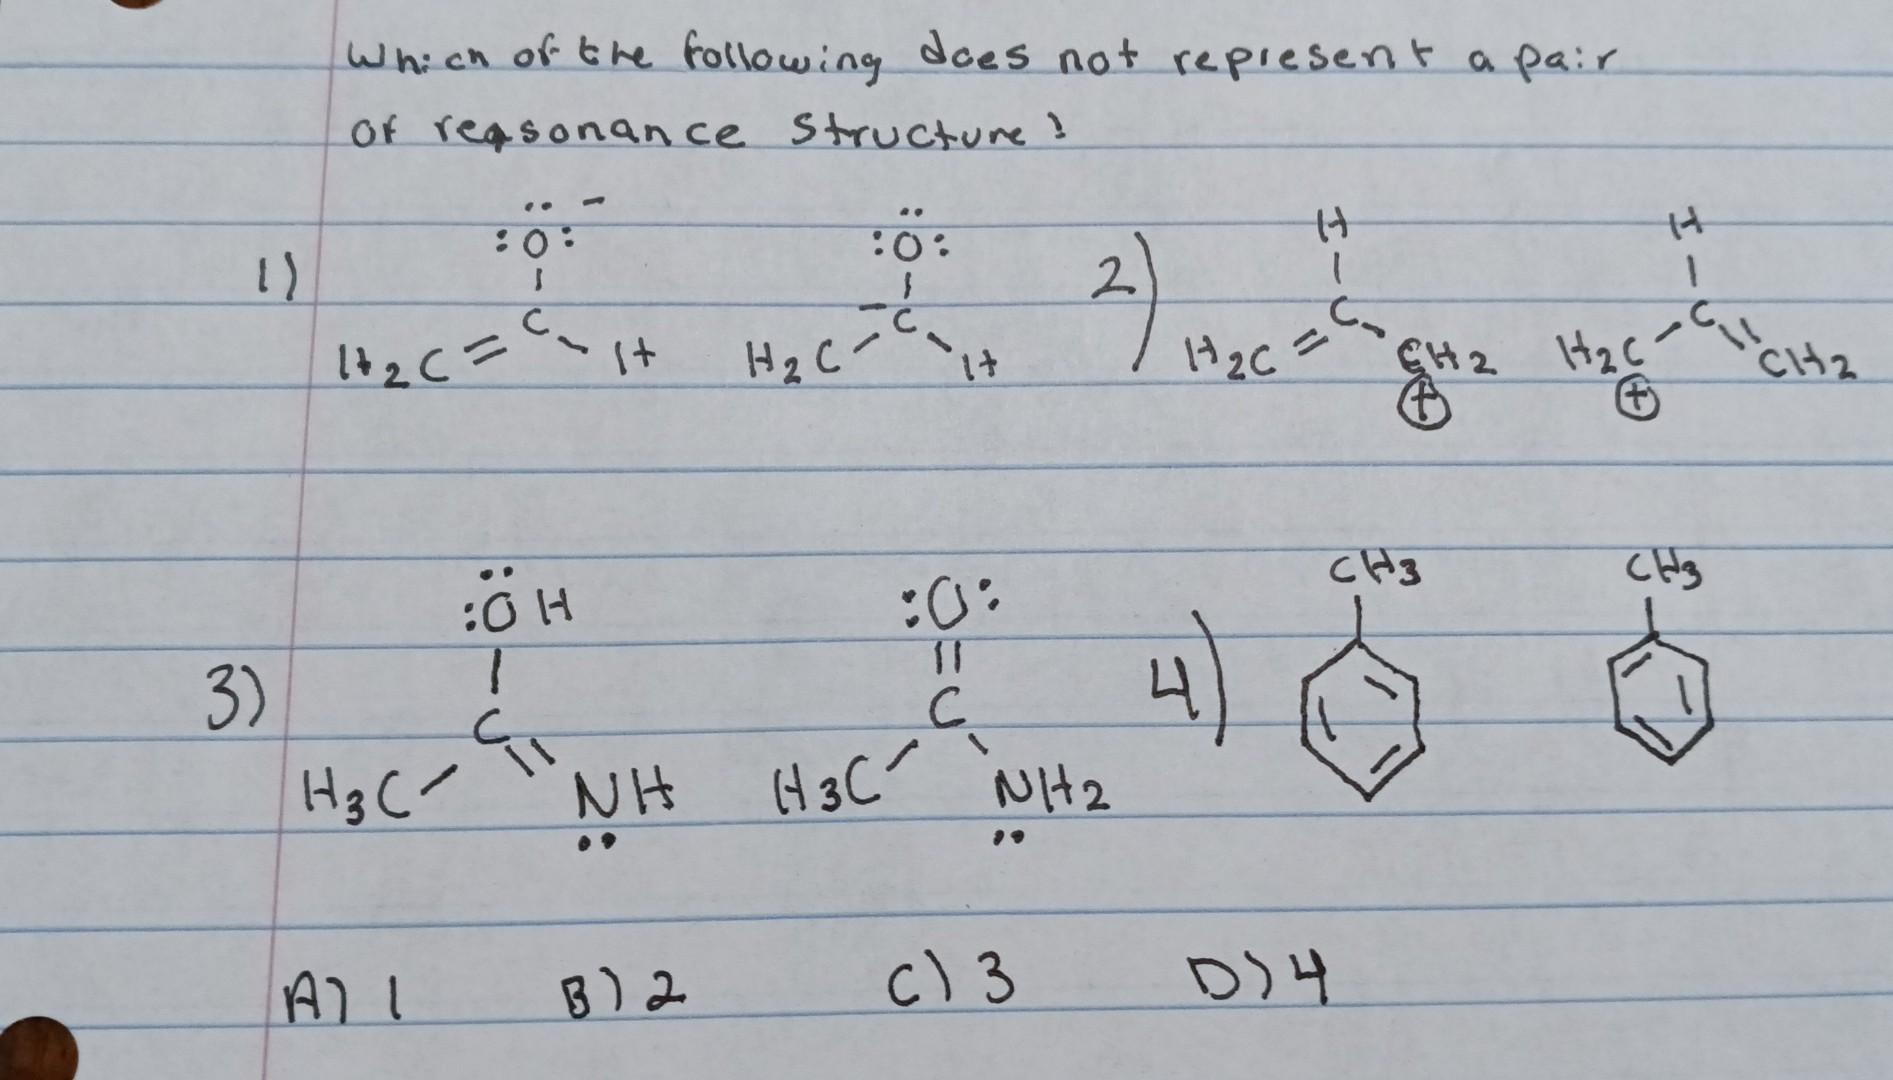 Which of the following does not represent a pair
of reasonance structure?
1) :Ö:⁻ C H₂C = H :Ö: ⁻C H₂C H
2) H C H₂C = CH₂ ⊕ H C H₂C ⊕ CH₂
3) :ÖH C H₃C NH :O: C H₃C NH₂
4) CH₃ CH₃
A) 1 B) 2 C) 3 D) 4